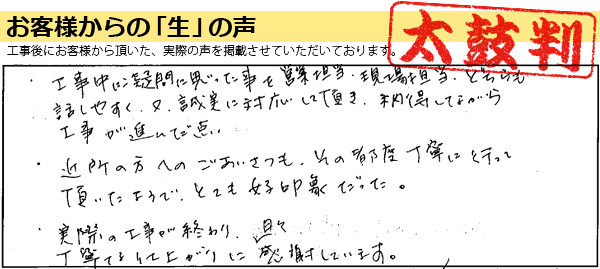 お客様からの「生」の声
太鼓判
工事後にお客様から頂いた、実際の声を掲載させていただいております。
・工事中に疑問に思った事を営業担当・現場担当・どちらも
話しやすく、又、誠実に対応して頂き、納得しながら
工事が進んだ点。
・近所の方へのごあいさつも、その都度丁寧に行って
頂いたようで、とても好印象だった。
・実際の工事が終わり、日々
丁寧な仕上がりに感謝しています。